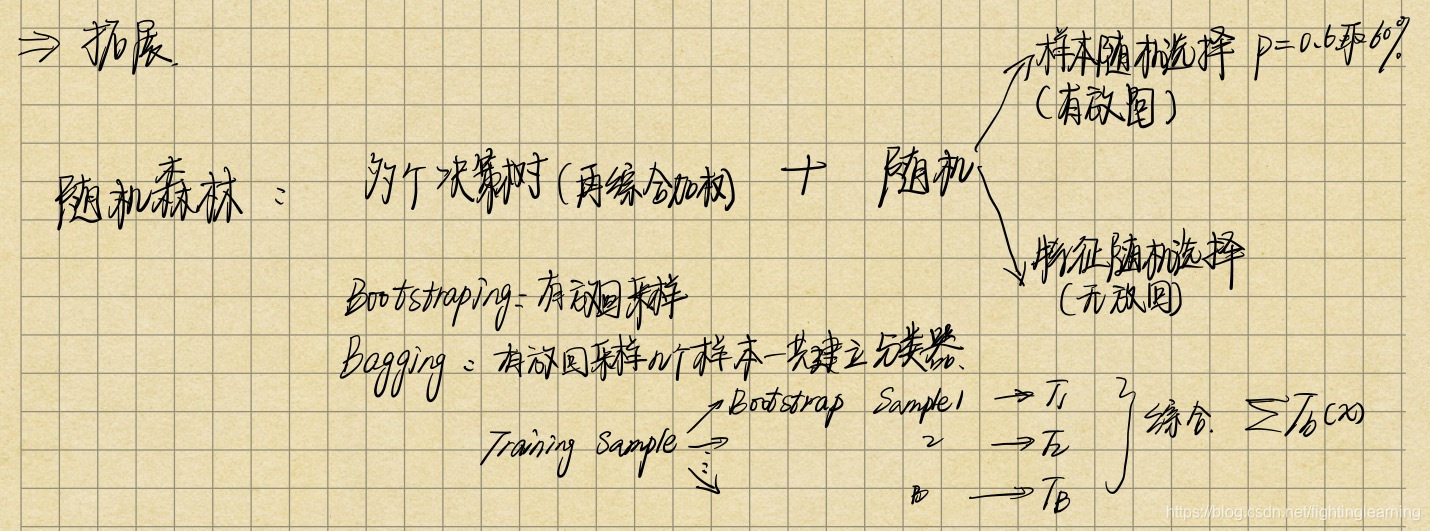 ⇒ 拓展.
样本随机选择 p=0.6取60%
(有放回)
随机森林: 多个决策树(再综合加权) + 随机
特征随机选择
(无放回)
Bootstraping: 有放回采样
Bagging: 有放回采样n个样本一共建立分类器.
Bootstrap Sample1 → T1
Training Sample → 2 → T2 } 综合. ∑Tb(x)
B → TB
https://blog.csdn.net/fightinglearning